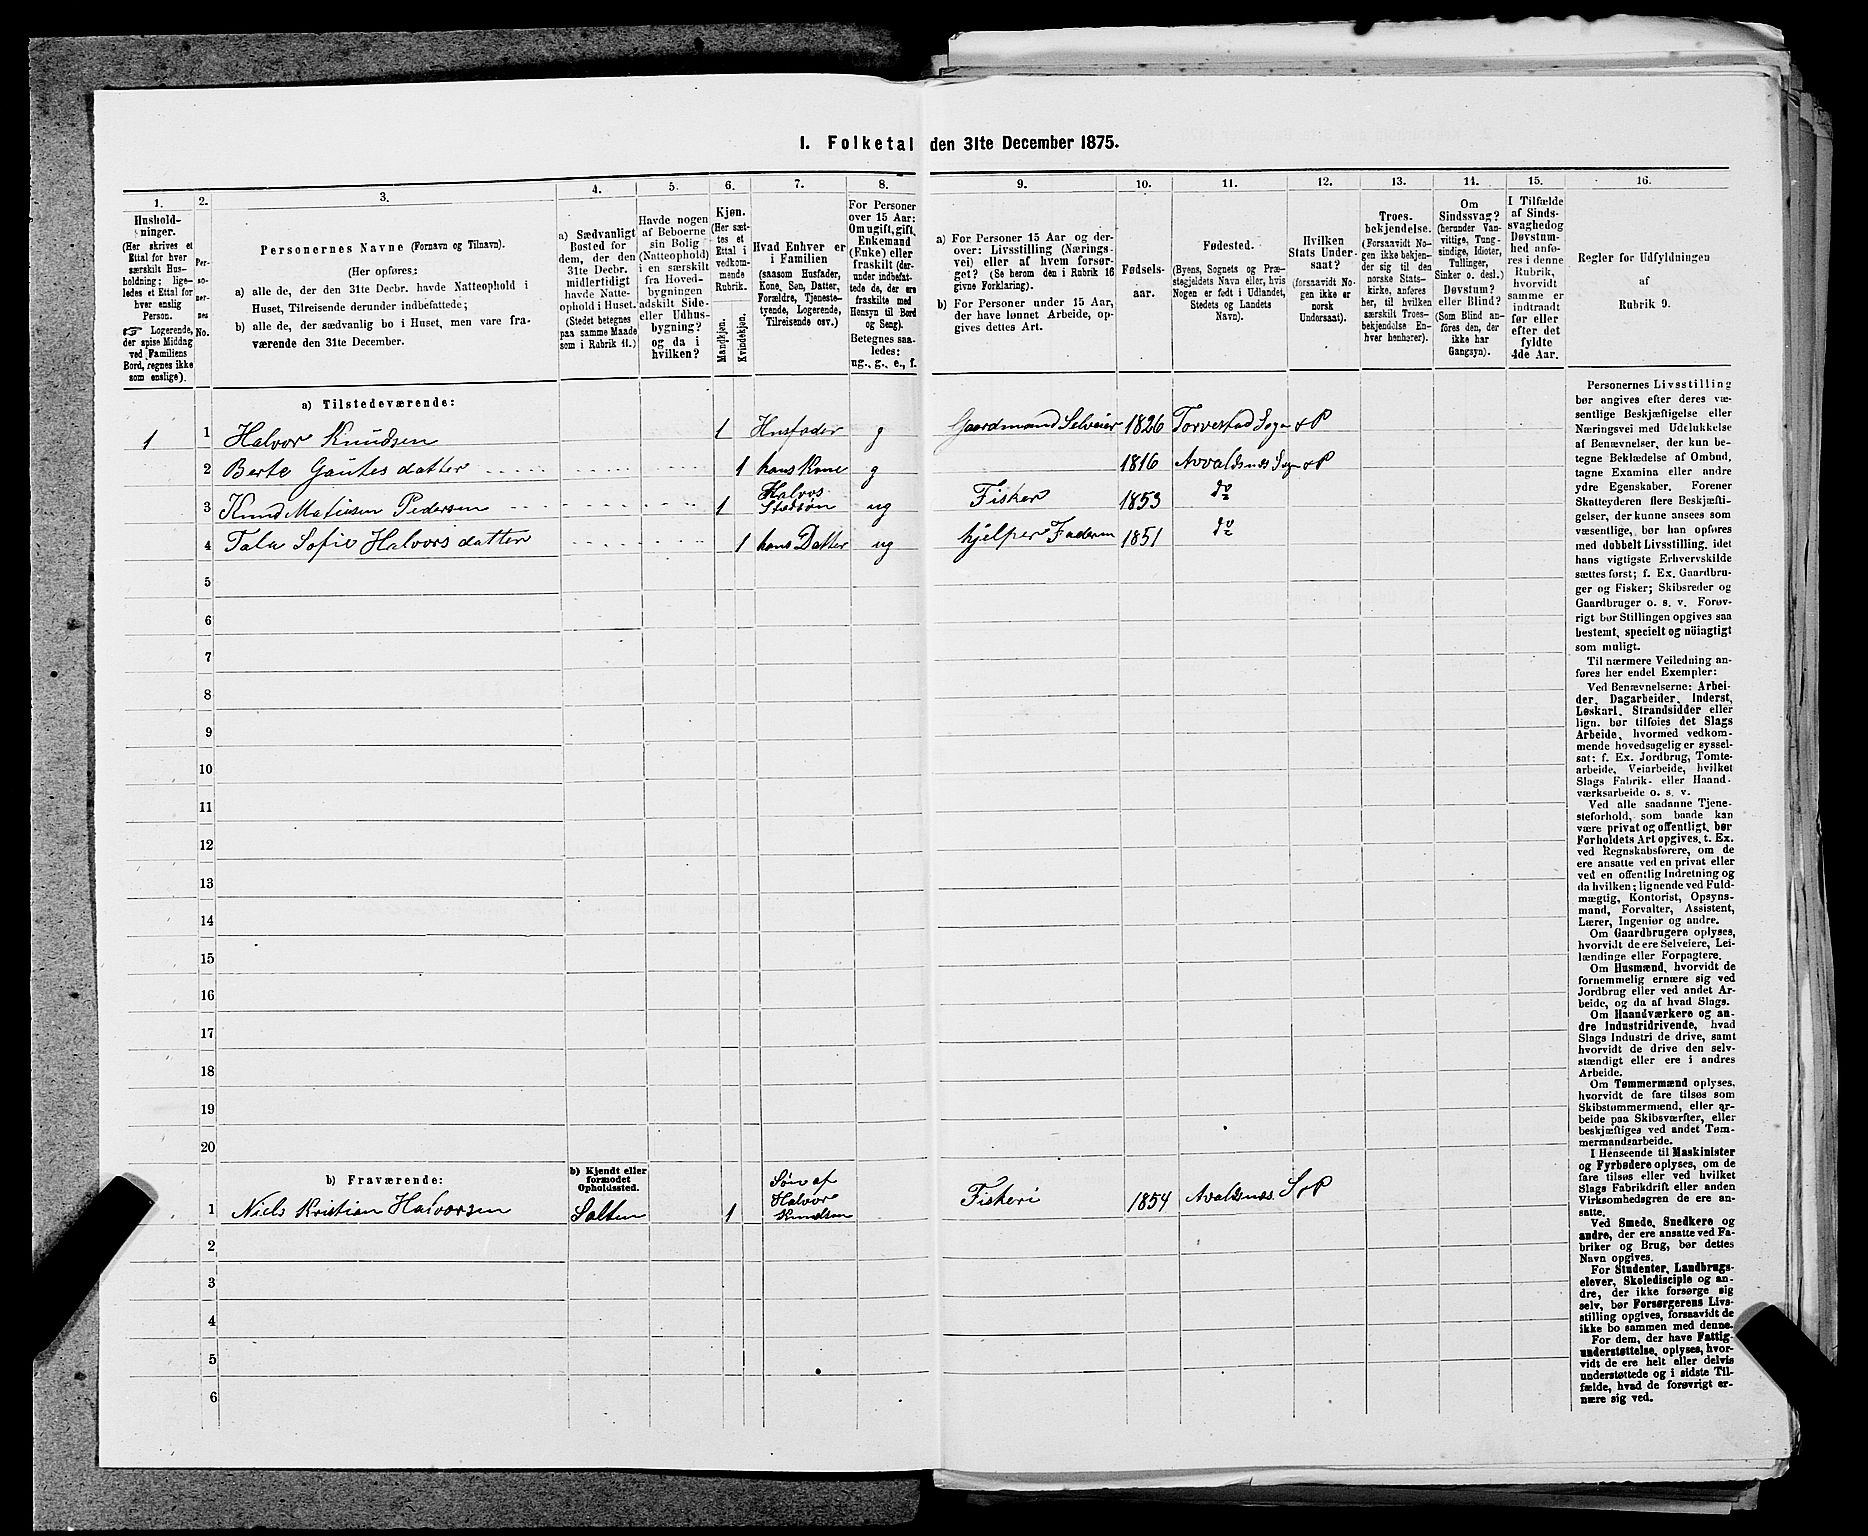 1. Folketal den 31te December 1875.
1.
Hushold-
ninger.
(Her skrives et
Ettal for hver
særskilt Hus-
holdning; lige-
ledes et Ettal for
hver enslig
Person.
☞ Logerende,
der spise Middag
ved Familiens
Bord, regnes ikke
som enslige).
2.
Per-
so-
ner-
nes
No.
3.
Personernes Navne (Fornavn og Tilnavn).
(Her opføres:
a) alle de, der den 31te Decbr. havde Natteophold i
Huset, Tilreisende derunder indbefattede;
b) alle de, der sædvanlig bo i Huset, men vare fra-
værende den 31te December.
4.
a) Sædvanligt
Bosted for
dem, der den
31te Decbr.
midlertidigt
havde Natte-
ophold i Huset.
(Stedet betegnes
paa samme Maade
som i Rubrik 11.)
5.
Havde nogen
af Beboerne
sin Bolig
(Natteophold)
i en særskilt
fra Hoved-
bygningen
adskilt Side-
eller Udhus-
bygning?
og da i
hvilken?
6.
Kjøn.
(Her sæt-
tes et
Ettal i
vedkom-
mende
Rubrik.
Mandkjøn.
Kvindekjøn.
7.
Hvad Enhver er
i Familien
(saasom Husfader,
Kone, Søn, Datter,
Forældre, Tjeneste-
tyende, Logerende,
Tilreisende osv.)
8.
For Personer
over 15 Aar:
Om ugift, gift,
Enkemand
(Enke) eller
fraskilt (der-
under indbefat-
tede de, der ere
fraskilte med
Hensyn til Bord
og Seng).
Betegnes saa-
ledes:
ug., g., e., f.
9.
a) For Personer 15 Aar og der-
over: Livsstilling (Nærings-
vei) eller af hvem forsør-
get? (Se herom den i Rubrik 16
givne Forklaring).
b) For Personer under 15 Aar,
der have lønnet Arbeide, op-
gives dettes Art.
10.
Fødsels-
aar.
11.
Fødested.
(Byens, Sognets og Præ-
stegjeldets Navn eller, hvis
Nogen er født i Udlandet,
Stedets og Landets
Navn).
12.
Hvilken
Stats Under-
saat?
(forsaavidt No-
gen ikke er
norsk
Undersaat).
13.
Troes-
bekjendelse.
(Forsaavidt No-
gen ikke bekjen-
der sig til den
norske Stats-
kirke, anføres
her, til hvilken
særskilt Troes-
bekjendelse En-
hver henhører).
14.
Om
Sindssvag?
(herunder Van-
vittige, Tung-
sindige, Idioter,
Tullinger,
Sinker o. desl.)
Døvstum?
eller Blind?
(Som Blind an-
føres den, der
ikke har
Gangsyn).
15.
I Tilfælde
af Sinds-
svaghed og
Døvstum-
hed anfø-
res i denne
Rubrik,
hvorvidt
samme er
indtraadt
før eller
efter det
fyldte
4de Aar.
16.
Regler for Udfyldningen
af
Rubrik 9.
a) Tilstedeværende:
1 1 Halvor Knudsen 1 Husfader g Gaardmand Selveier 1826 Torvestad Sogn & P
2 Berte Gautesdatter 1 hans Kone g 1816 Avvaldsnes Sogn & P
3 Knud Matiesen Pedersen 1 Halvors Stedsøn ug Fisker 1853 do
4 Tala Sofie Halvorsdatter 1 hans Datter ug hjelper Faderen 1851 do
5
6
7
8
9
10
11
12
13
14
15
16
17
18
19
20
b) Fraværende:
b) Kjendt eller
formodet
Opholdssted.
1 Niels Kristian Halvorsen Salten 1 Søn af Halvor Knudsen Fiskeri 1854 Avaldsnes S & P
2
3
4
5
6
Personernes Livsstilling
bør angives efter deres væ-
sentlige Beskjæftigelse eller
Næringsvei med Udelukkelse
af Benævnelser, der kun be-
tegne Beklædelse af Ombud,
tagne Examina eller andre
ydre Egenskaber. Forener
Skatteyderen flere Beskjæfti-
gelser, der kunne ansees som
væsentlige, bør han opføres
med dobbelt Livsstilling, idet
hans vigtigste Erhvervskilde
sættes først; f. Ex. Gaardbru-
ger og Fisker; Skibsreder og
Gaardbruger o. s. v. Forøv-
rigt bør Stillingen opgives saa
bestemt, specielt og nöiagtigt
som muligt.
Til nærmere Veiledning an-
føres her endel Exempler:
Ved Benævnelserne: Arbei-
der, Dagarbeider, Inderst,
Løskarl, Strandsidder eller
lign. bør tilføies det Slags
Arbeide, hvormed vedkom-
mende hovedsagelig er syssel-
sat; f. Ex. Jordbrug, Tomte-
arbeide, Veiarbeide, hvilket
Slags Fabrik- eller Haand-
værksarbeide o. s. v.
Ved alle saadanne Tjene-
steforhold, som baade kan
være privat og offentligt, bør
Forholdets Art opgives, t. Ex.
ved Regnskabsførere, om de
ere ansatte ved en privat eller
ved en offentlig Indretning og
da hvilken; lignende ved Fuld-
mægtig, Kontorist, Opsyns-
mand, Forvalter, Assistent,
Lærer, Ingeniør og andre.
Om Gaardbrugere oplyses,
hvorvidt de ere Selveiere, Lei-
lændinge eller Forpagtere.
Om Husmænd, hvorvidt de
fornemmelig ernære sig ved
Jordbrug eller ved andet Ar-
beide, og da af hvad Slags.
Om Haandværkere og an-
dre Industridrivende, hvad
Slags Industri de drive, samt
hvorvidt de drive den selv-
stændigt eller ere i andres
Arbeide.
Om Tømmermænd oplyses,
hvorvidt de fare tilsøs som
Skibstømmermænd, eller ar-
beide paa Skibsværfter, eller
beskjæftiges ved andet Tøm-
mermandsarbeide.
I Henseende til Maskinister
og Fyrbødere oplyses, om de
fare tilsøs eller ved hvilket
Slags Fabrikdrift eller anden
Virksomhedsgren de ere an-
satte.
Ved Smede, Snedkere og
andre, der ere ansatte ved Fa-
briker og Brug, bør dettes
Navn opgives.
For Studenter, Landbrugs-
elever, Skoledisciple og an-
dre, der ikke forsørge sig
selv, bør Forsørgerens Livs-
stilling opgives, forsaavidt de
ikke bo sammen med denne.
For dem, der have Fattig-
understøttelse, oplyses, hvor-
vidt de ere helt eller delvis
understøttede og i sidste Til-
fælde, hvad de forøvrigt er-
nære sig ved.